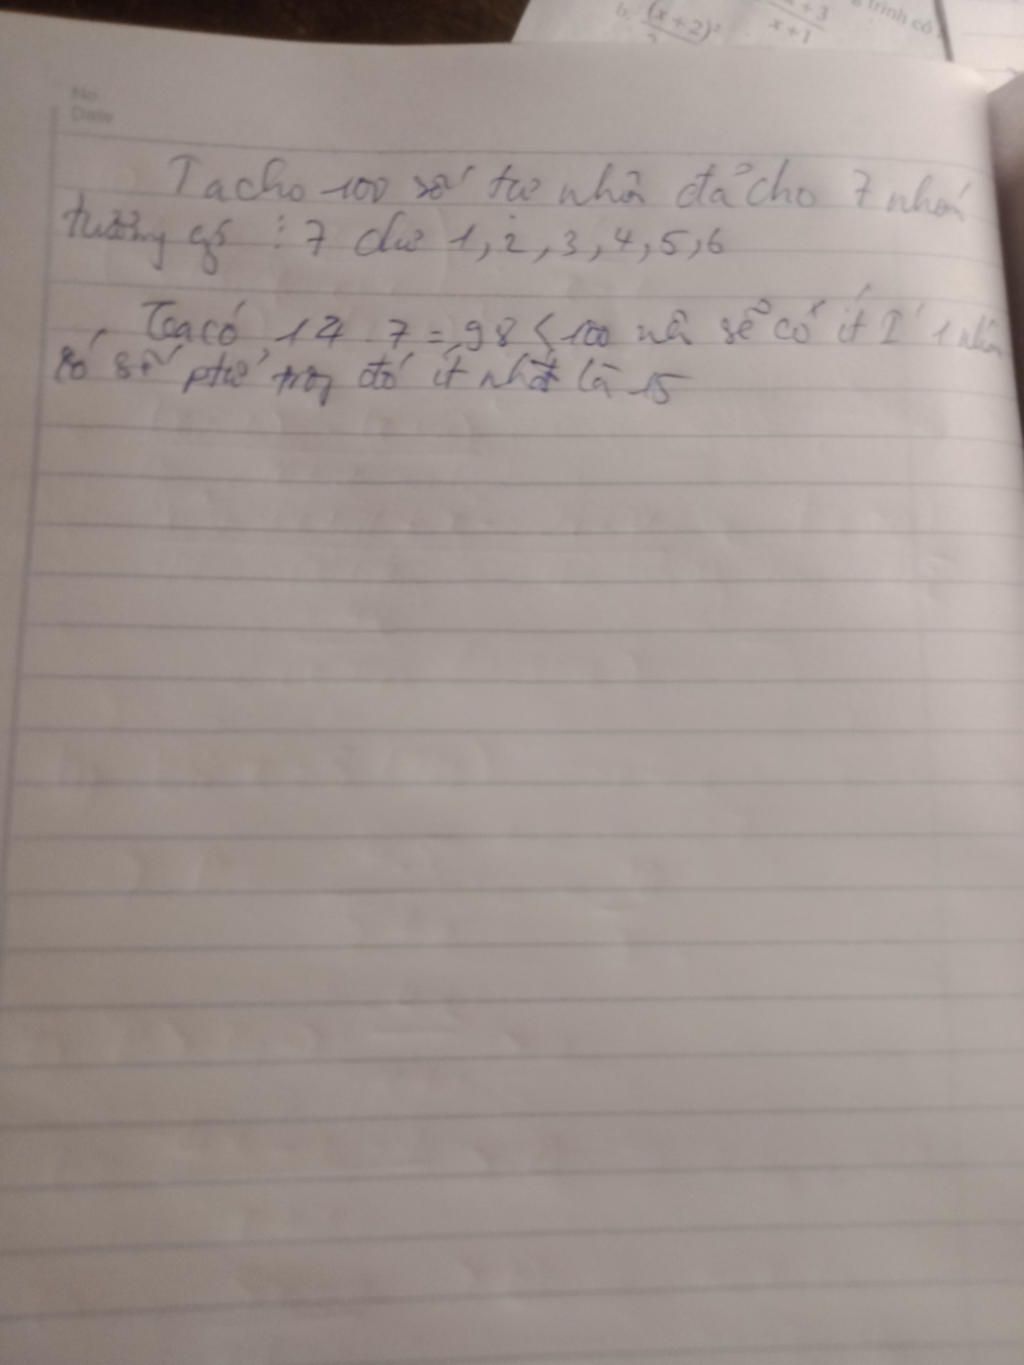 b. (x+2)²
x+3
x+1
trình có
No.
Date
Ta cho 100 số tự nhiê đã cho 7 nhóm
tương gs ⋮ 7 dư 1, 2, 3, 4, 5, 6
Ta có 14 . 7 = 98 < 100 nê sẽ có ít 1 nhóm
số phư trog đó ít nhất là 15